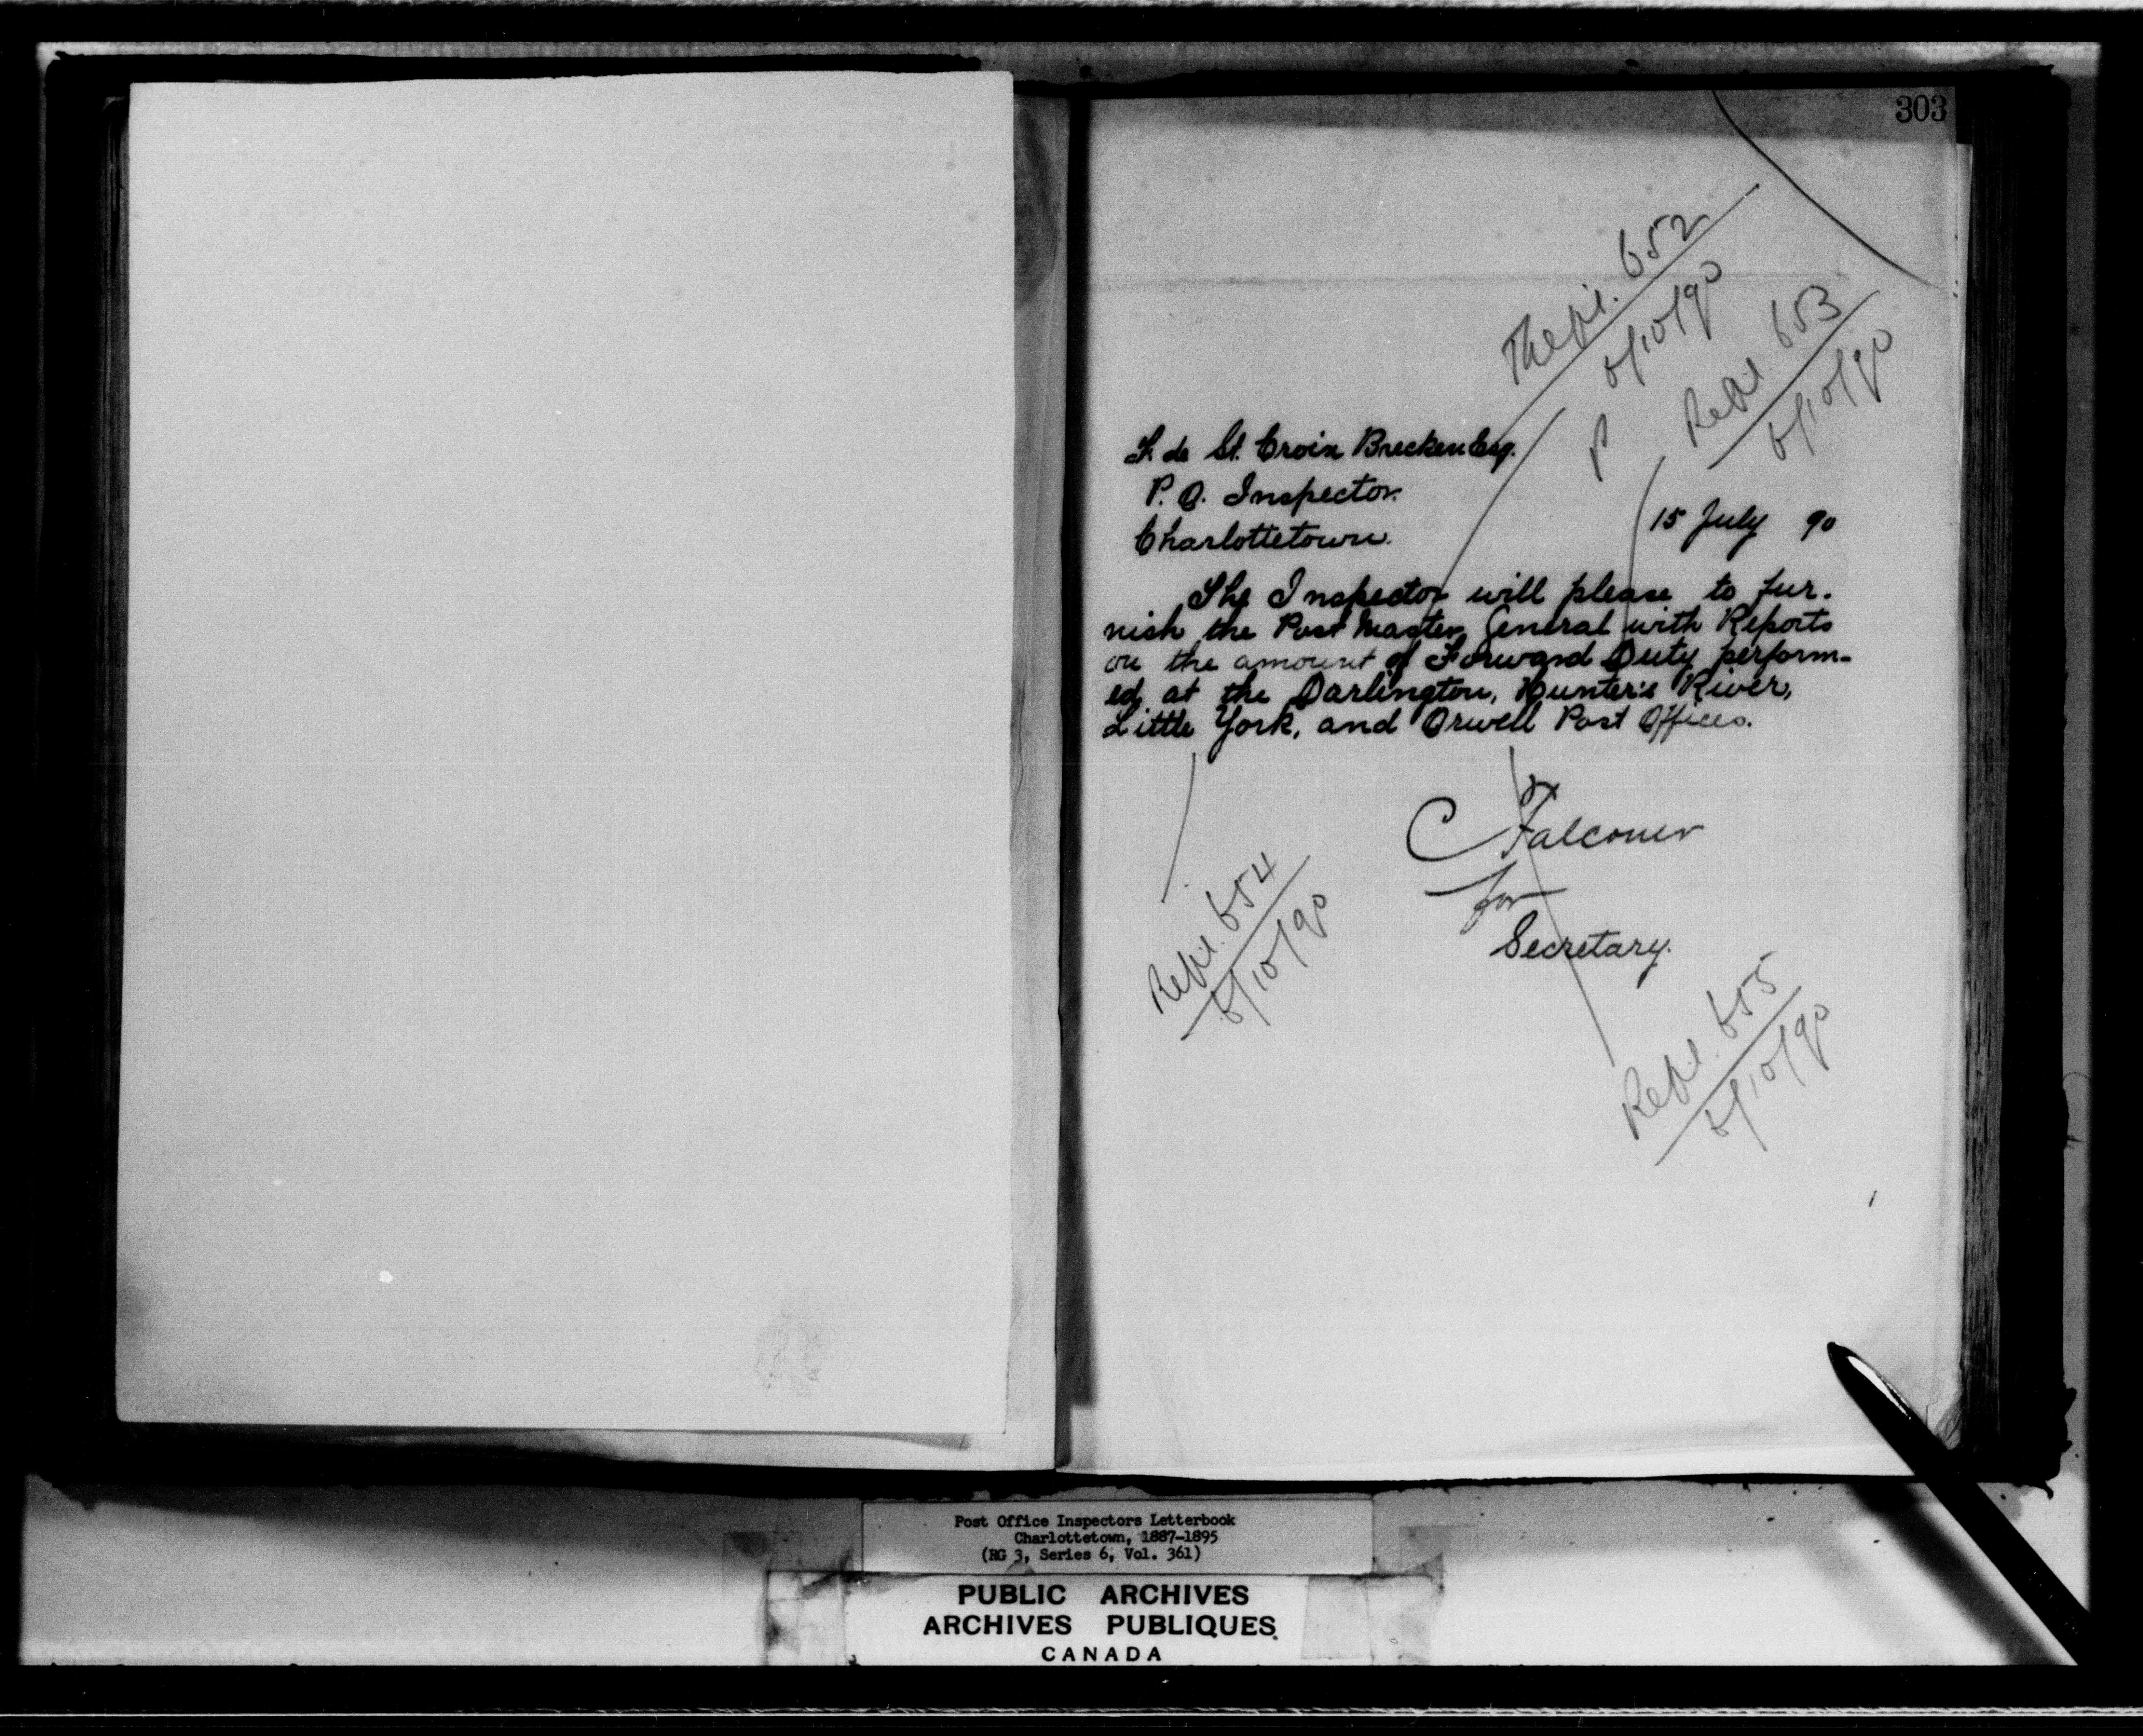 303
Repl. 652
6/10/90
Repl. 653
6/10/90
F. de St. Croix Brecken Esq.
P. O. Inspector.
Charlottetown.
15 July 90
The Inspector will please to fur-
nish the Post Master General with Reports
on the amount of Forward Duty perform-
ed at the Darlington, Hunter's River,
Little York, and Orwell Post Offices.
C Falconer
for
Secretary.
Repl. 654
6/10/90
Repl. 655
6/10/90
Post Office Inspectors Letterbook
Charlottetown, 1887-1895
(RG 3, Series 6, Vol. 361)
PUBLIC ARCHIVES
ARCHIVES PUBLIQUES
CANADA